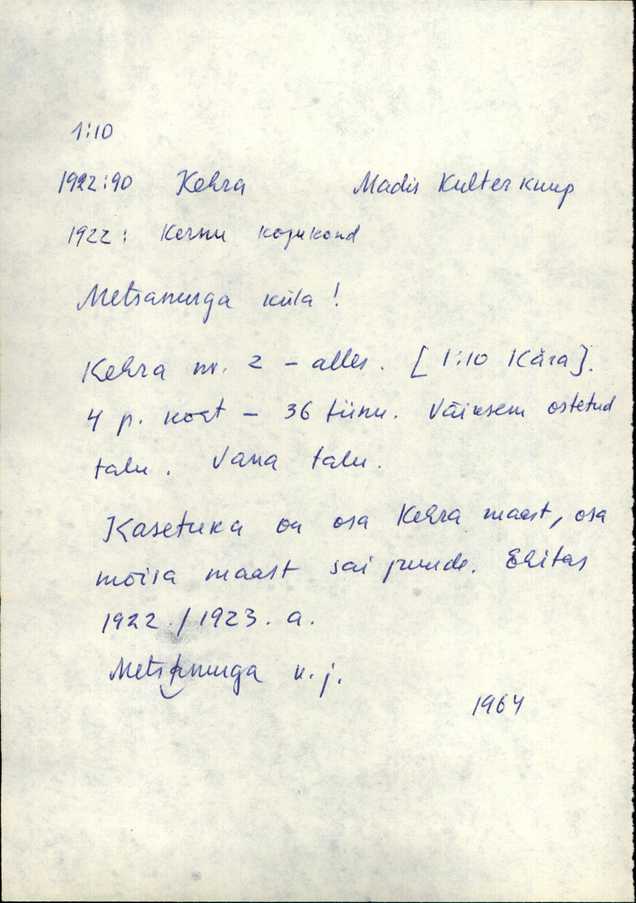 1:10
1922:90 Kehra Madis Kulterkuup
1922: Kernu kogukond
Metsanurga küla!
Kehra nr. 2 – alles. [1:10 Kära].
4 p. koht – 36 tiinu. Väiksem ostetud
talu. Vana talu.
Kasetuka on osa Kehra maast, osa
mõisa maast sai juurde. Ehitas
1922./1923. a.
Metsanurga k.j.
1964